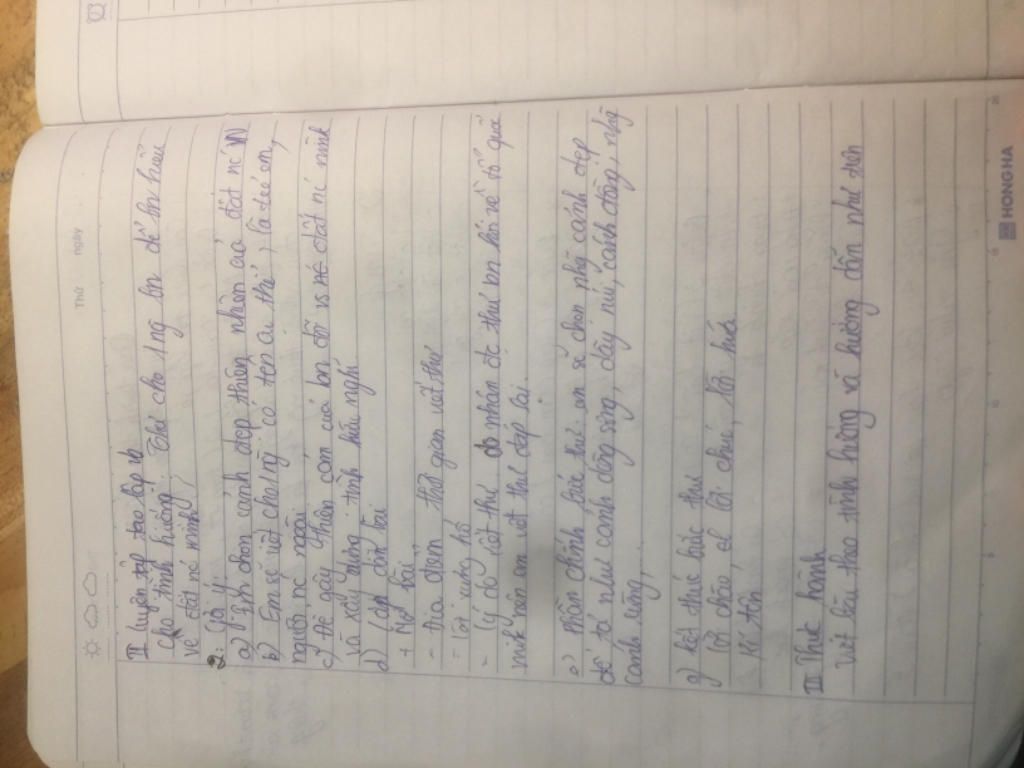 Thứ ngày
II Luyện tập tạo lập vb
Cho tình huống: Thư cho 1 ng bn để tìm hiểu
về đất nc mình
2: Gợi ý:
a) Em chọn cảnh đẹp thiên nhiên của đất nc VN
b) Em sẽ viết cho 1 ng có tên cụ thể, là trẻ em,
người nc ngoài
c) Để gây thiện cảm của bn đối vs đất nc mình
và xây dựng tình hữu nghị
d) Lập dàn bài
+ Mở bài
- Địa điểm thời gian viết thư
- Lời xưng hô
- Lý do viết thư nhận đc thư bn hỏi về tổ quốc
mình nên em viết thư đáp lại.
e) Phần chính bức thư: em sẽ chọn nhg cảnh đẹp
để tả như cảnh dòng sông, dãy núi, cánh đồng, nhg
cánh rừng,
g) kết thúc bức thư
lời chào, lời chúc, lời hứa
Kí tên
III Thực hành
Viết bài theo tình huống và hướng dẫn như trên
HONG HA